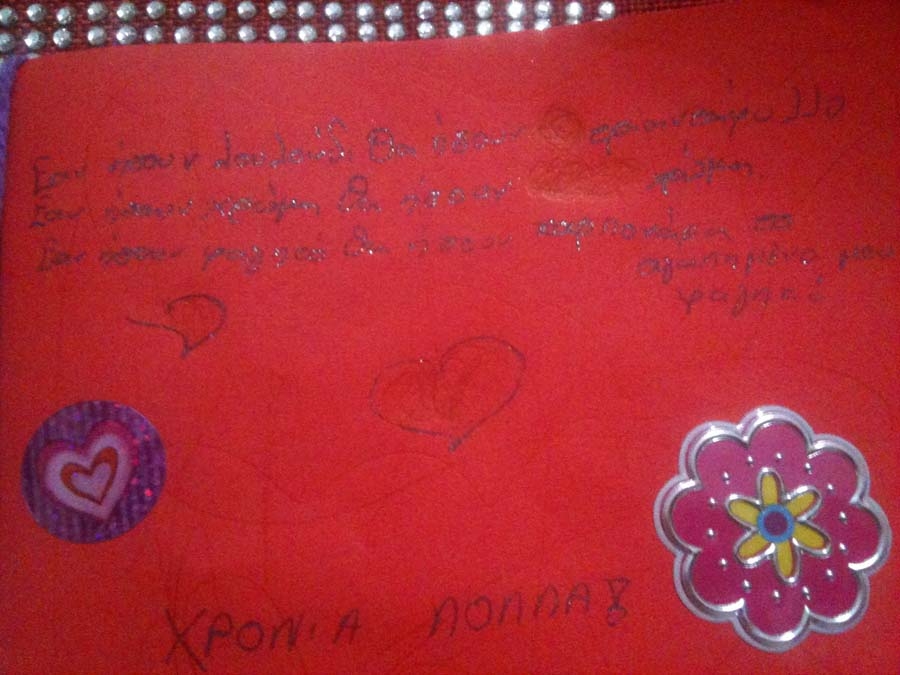 Εαν ήσουν λουλούδι θα ήσουν τριαντάφυλλο
Εαν ήσουν χρώμα θα ήσουν
Εαν ήσουν φαγητό θα ήσουν το
αγαπημένο μου
φαγητό!
ΧΡΟΝΙΑ ΠΟΛΛΑ!